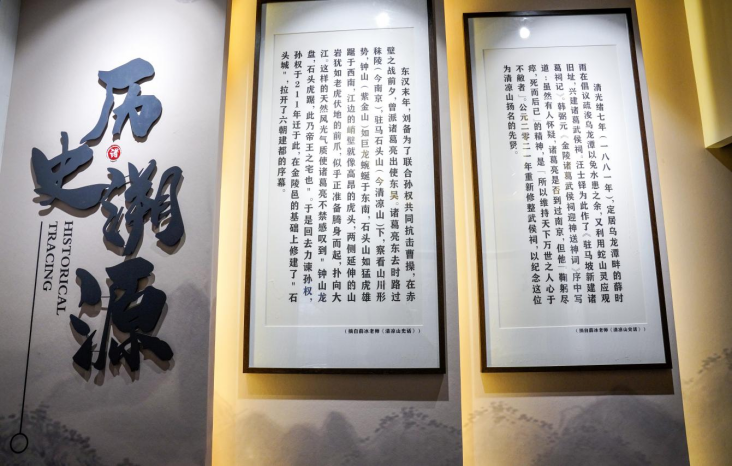 历史溯源
HISTORICAL
TRACING
东汉末年，刘备为了联合孙权共同抗击曹操，在赤
壁之战前夕，曾派诸葛亮出使东吴。诸葛亮东去时路过
秣陵（今南京），驻马石头山（今清凉山）下，察看山川形
势，钟山（紫金山）如巨龙蜿蜒于东南，石头山如猛虎雄
踞于西南，江边的峭壁就像高昂的虎头，两侧延伸的山
岩犹如老虎伏地的前爪，似乎正准备腾身而起，扑向大
江。这样的天然风光气质使诸葛亮不禁感叹到“钟山龙
盘，石头虎踞，此乃帝王之宅也”。于是回去力谏孙权，
孙权于211年迁于此，在金陵邑的基础上修建了“石
头城”，拉开了六朝建都的序幕。
（摘自薛冰老师《清凉山史话》）
清光绪七年（一八八一年），定居乌龙潭畔的薛时
雨在倡议疏浚乌龙潭以免水患之余，又利用蛇山灵应观
旧址，兴建诸葛武侯祠。汪士铎为此作了《驻马坡新建诸
葛祠记》。韩弼元《金陵诸葛武侯祠迎神送神词》序中写
道：虽然有人怀疑，诸葛亮是否到过南京，但他「鞠躬尽
瘁，死而后已」的精神，是「所以维持天下万世之人心于
不敝者」。公元二零二一年重新修整武侯祠，以纪念这位
为清凉山扬名的先贤。
（摘自薛冰老师《清凉山史话》）